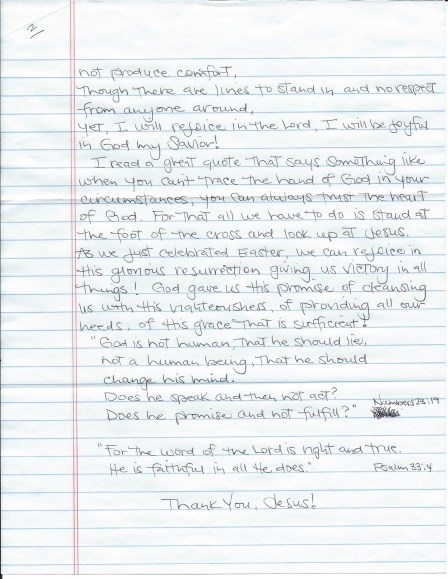 2
not produce comfort,
Though there are lines to stand in and no respect
from anyone around,
Yet, I will rejoice in the Lord, I will be joyful
in God my Savior!
I read a great quote that says something like
when you can't trace the hand of God in your
circumstances, you can always trust the heart
of God. For that all we have to do is stand at
the foot of the cross and look up at Jesus.
As we just celebrated Easter, we can rejoice in
His glorious resurrection giving us victory in all
things! God gave us His promise of cleansing
us with His righteousness, of providing all our
needs, of His grace that is sufficient!
"God is not human, that he should lie,
not a human being, that he should
change his mind.
Does he speak and then not act?
Does he promise and not fulfill?" Numbers 23:19
"For the word of the Lord is right and true.
He is faithful in all He does." Psalm 33:4
Thank You, Jesus!